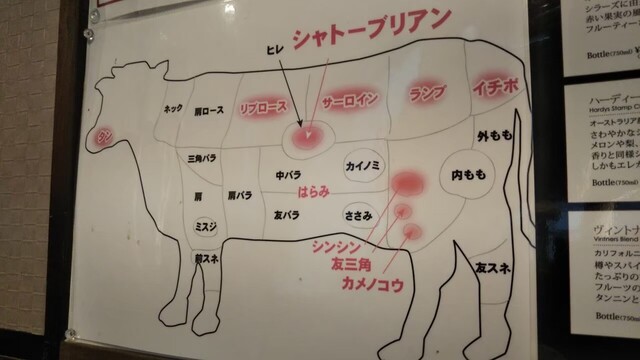 シャトーブリアン
ヒレ
ネック
肩ロース
リブロース
サーロイン
ランプ
イチボ
タン
三角バラ
中バラ
カイノミ
外もも
内もも
肩
肩バラ
はらみ
友バラ
ささみ
ミスジ
前スネ
シンシン
友三角
カメノコウ
友スネ
シラーズに由
赤い果実の風
フルーティー
Bottle(750ml) ¥
ハーディー
Hardys Stamp C
オーストラリア産
さわやかな
メロンや梨、
香りと同様シ
しかもエレガ
Bottle(750ml)
ヴィントナ
Vintners Blend
カリフォルニ
樽やスパイ
たっぷりの
フルーツの
タンニンと
Bottle(750ml